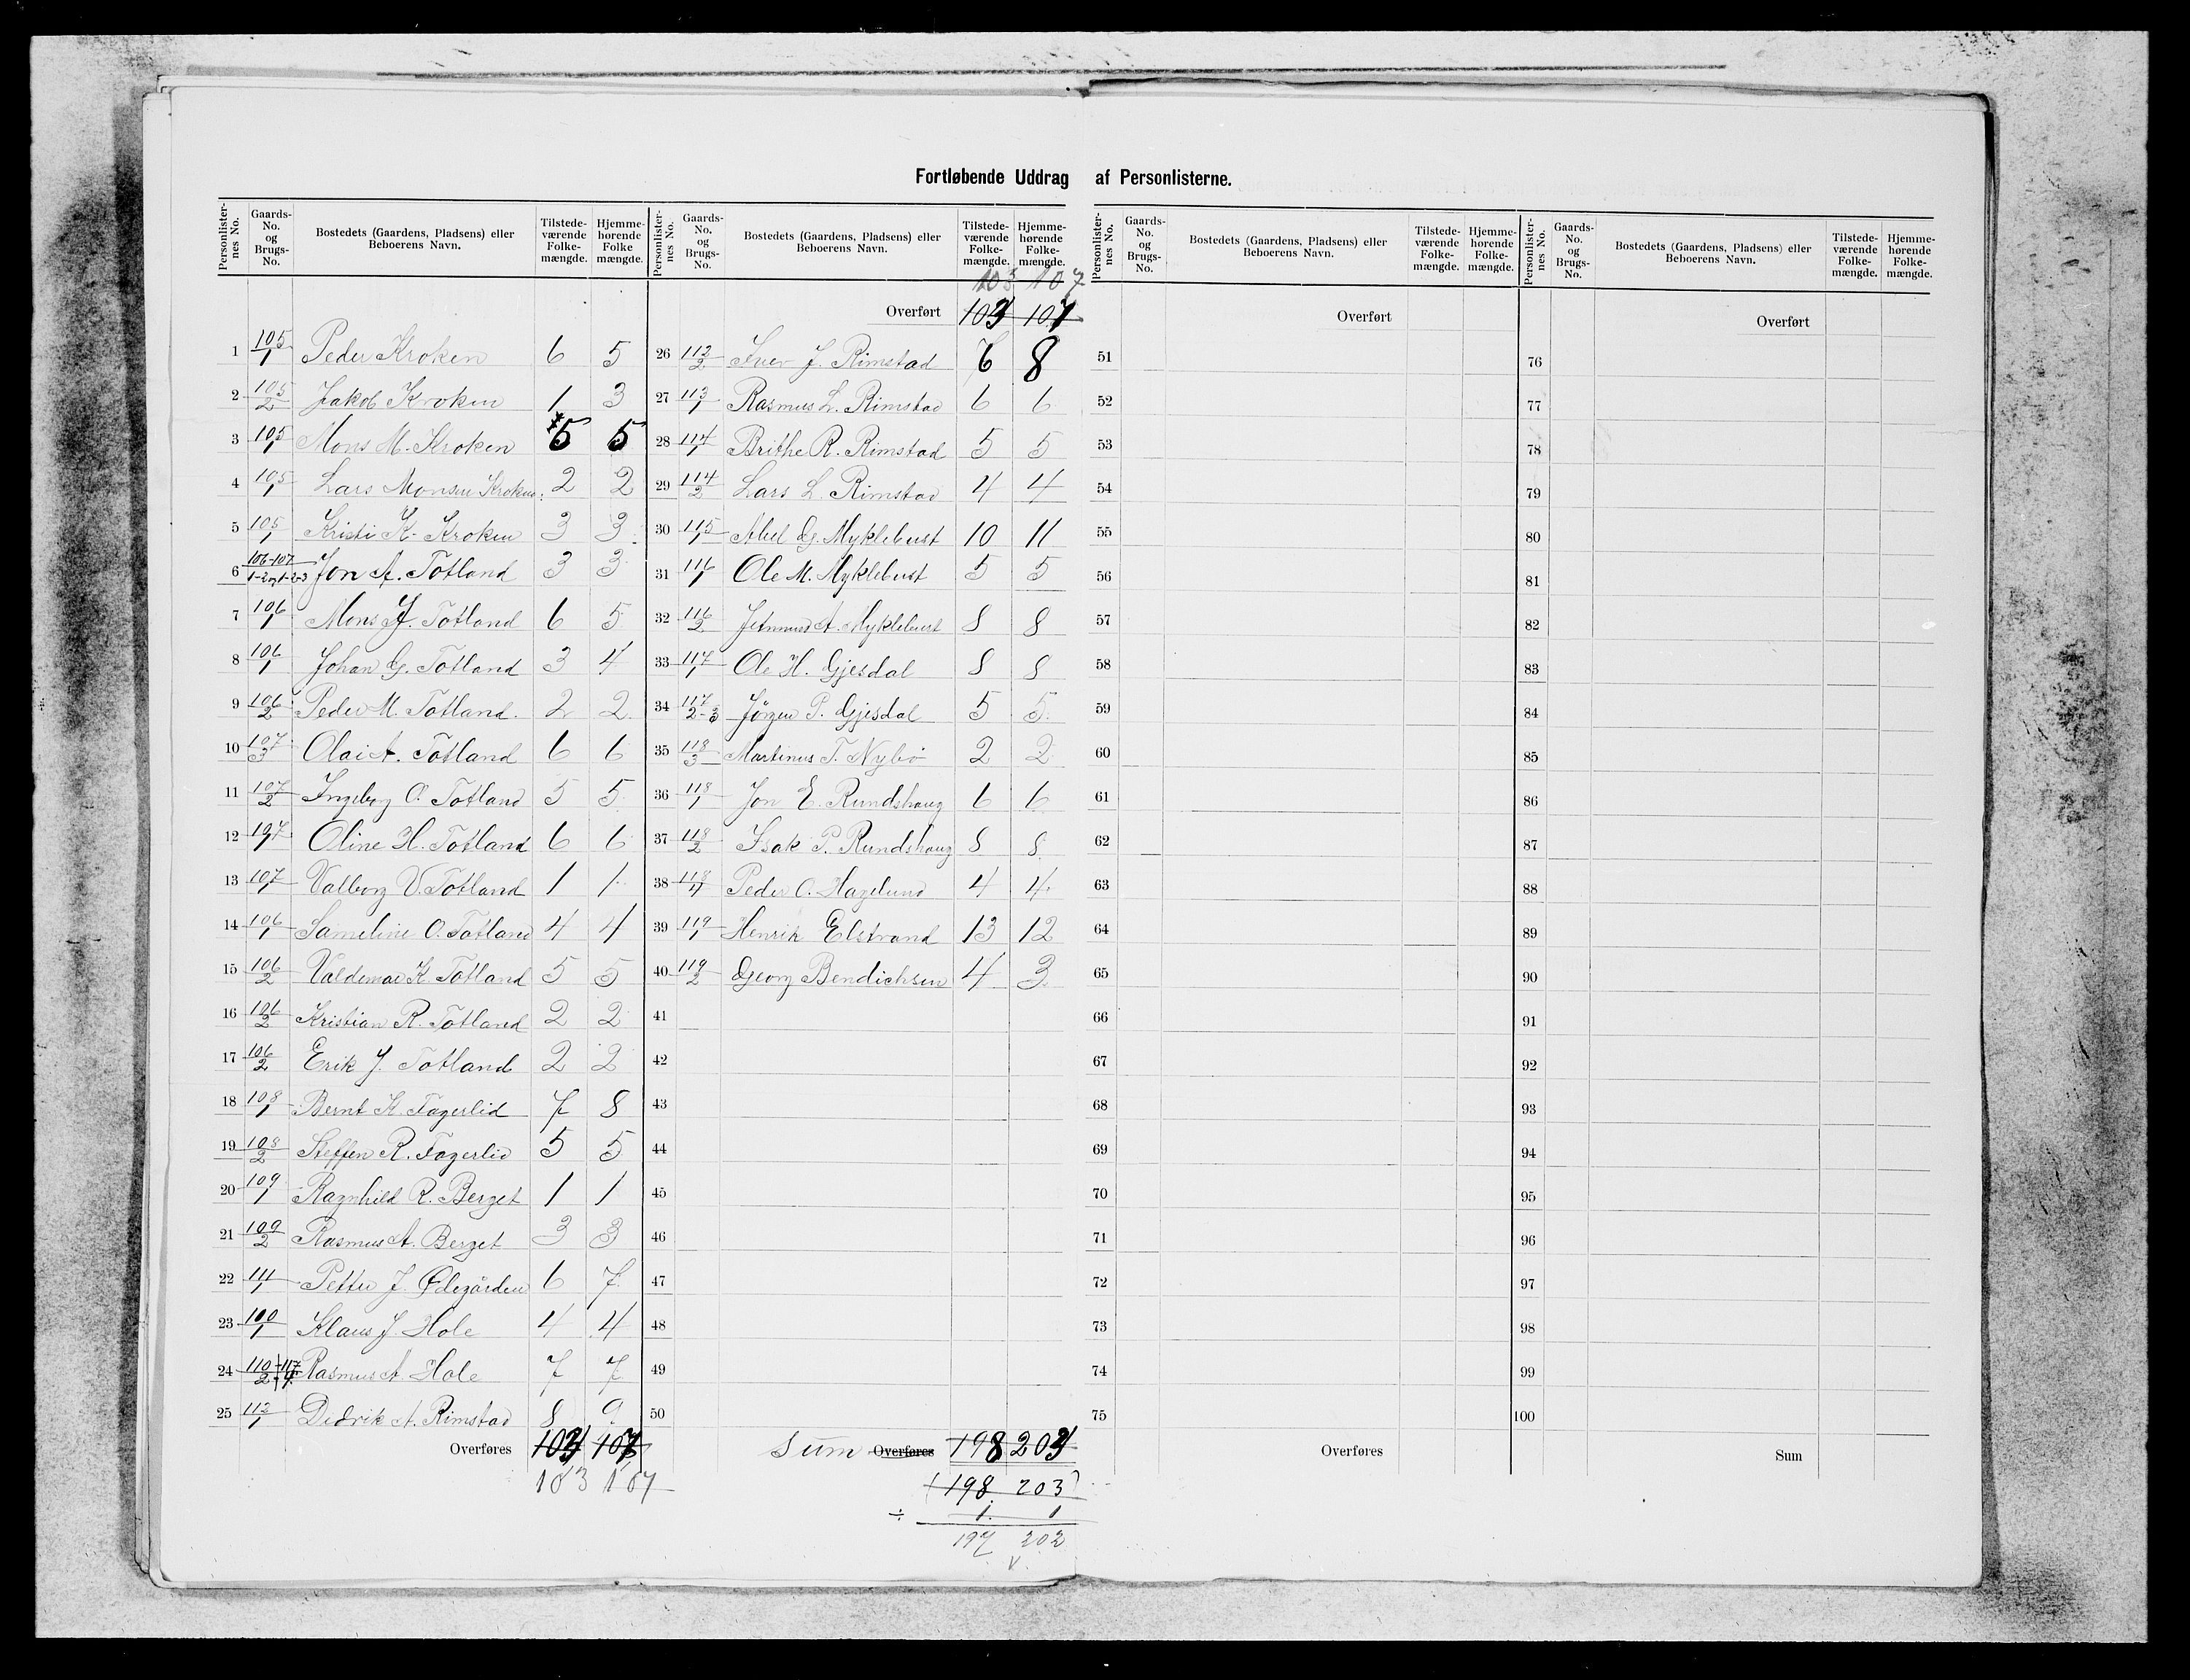 Fortløbende Uddrag af Personlisterne.
Personlister-nes No. Gaards-No. og Brugs-No. Bostedets (Gaardens, Pladsens) eller Beboerens Navn. Tilstede-værende Folke-mængde. Hjemme-hørende Folke mængde.
1 105/1 Peder Kroken 6 5
2 105/2 Jakob Kroken 1 3
3 105/1 Mons M. Kroken 5 5
4 105/1 Lars Monsen Kroken 2 2
5 105/1 Kristi K. Kroken 3 3
6 106-107 Jon A. Totland 3 3
7 106/1 Mons J. Totland 6 5
8 106/1 Johan G. Totland 3 4
9 106/2 Peder M. Totland. 2 2
10 107/3 Olai A. Totland 6 6
11 107/2 Ingeborg O. Totland 5 5
12 107/1 Oline H. Totland 6 6
13 107/1 Valborg V. Totland 1 1
14 106/1 Sameline O. Totland 4 4
15 106/2 Valdemar K Totland 5 5
16 106/2 Kristian R. Totland 2 2
17 106/2 Erik J. Totland 2 2
18 108/1 Bernt K. Fagerlid 7 8
19 108/2 Steffen R. Fagerlid 5 5
20 109/1 Ragnhild R. Berget 1 1
21 109/2 Rasmus A. Berget 3 3
22 111/1 Petter J. Ødegården 6 7
23 Klaus J. Hole 4 4
24 Rasmus A Hole 7 7
25 112/1 Dedrik A. Rimstad 8 9
Overføres 103 107
103 107
Personlister-nes No. Gaards-No. og Brugs-No. Bostedets (Gaardens, Pladsens) eller Beboerens Navn. Tilstede-værende Folke-mængde. Hjemme-hørende Folke-mængde.
103 107
Overført 103 107
26 112/2 Iver J. Rimstad 6 8
27 113/1 Rasmus L. Rimstad 6 6
28 114/1 Brithe R. Rimstad 5 5
29 114/2 Lars L. Rimstad 4 4
30 115/1 Abel G. Myklebust 10 11
31 116/1 Ole M. Myklebust 5 5
32 116/2 A. Myklebust 8 8
33 117/1 Ole H. Gjesdal 8 8
34 117/2-3 Jörgen P. Gjesdal 5 5
35 118/3 Martinus T. Nybö 2 2
36 118/1 Jon E. Rundshaug 6 6
37 118/2 Isak P. Rundshaug 8 8
38 118/4 Peder O. Hagelund 4 4
39 119/1 Henrik Elstrand 13 12
40 119/2 Georg Bendichsen 4 3
41
42
43
44
45
46
47
48
49
50
Sum Overføres 198 203
(198 203)
÷ 1. 1
197 202
v
Personlister-nes No. Gaards-No. og Brugs-No. Bostedets (Gaardens, Pladsens) eller Beboerens Navn. Tilstede-værende Folke-mængde. Hjemme-hørende Folke-mængde.
Overført
51
52
53
54
55
56
57
58
59
60
61
62
63
64
65
66
67
68
69
70
71
72
73
74
75
Overføres
Personlister-nes No. Gaards-No. og Brugs-No. Bostedets (Gaardens, Pladsens) eller Beboerens Navn. Tilstede-værende Folke-mængde. Hjemme-hørende Folke-mængde.
Overført
76
77
78
79
80
81
82
83
84
85
86
87
88
89
90
91
92
93
94
95
96
97
98
99
100
Sum